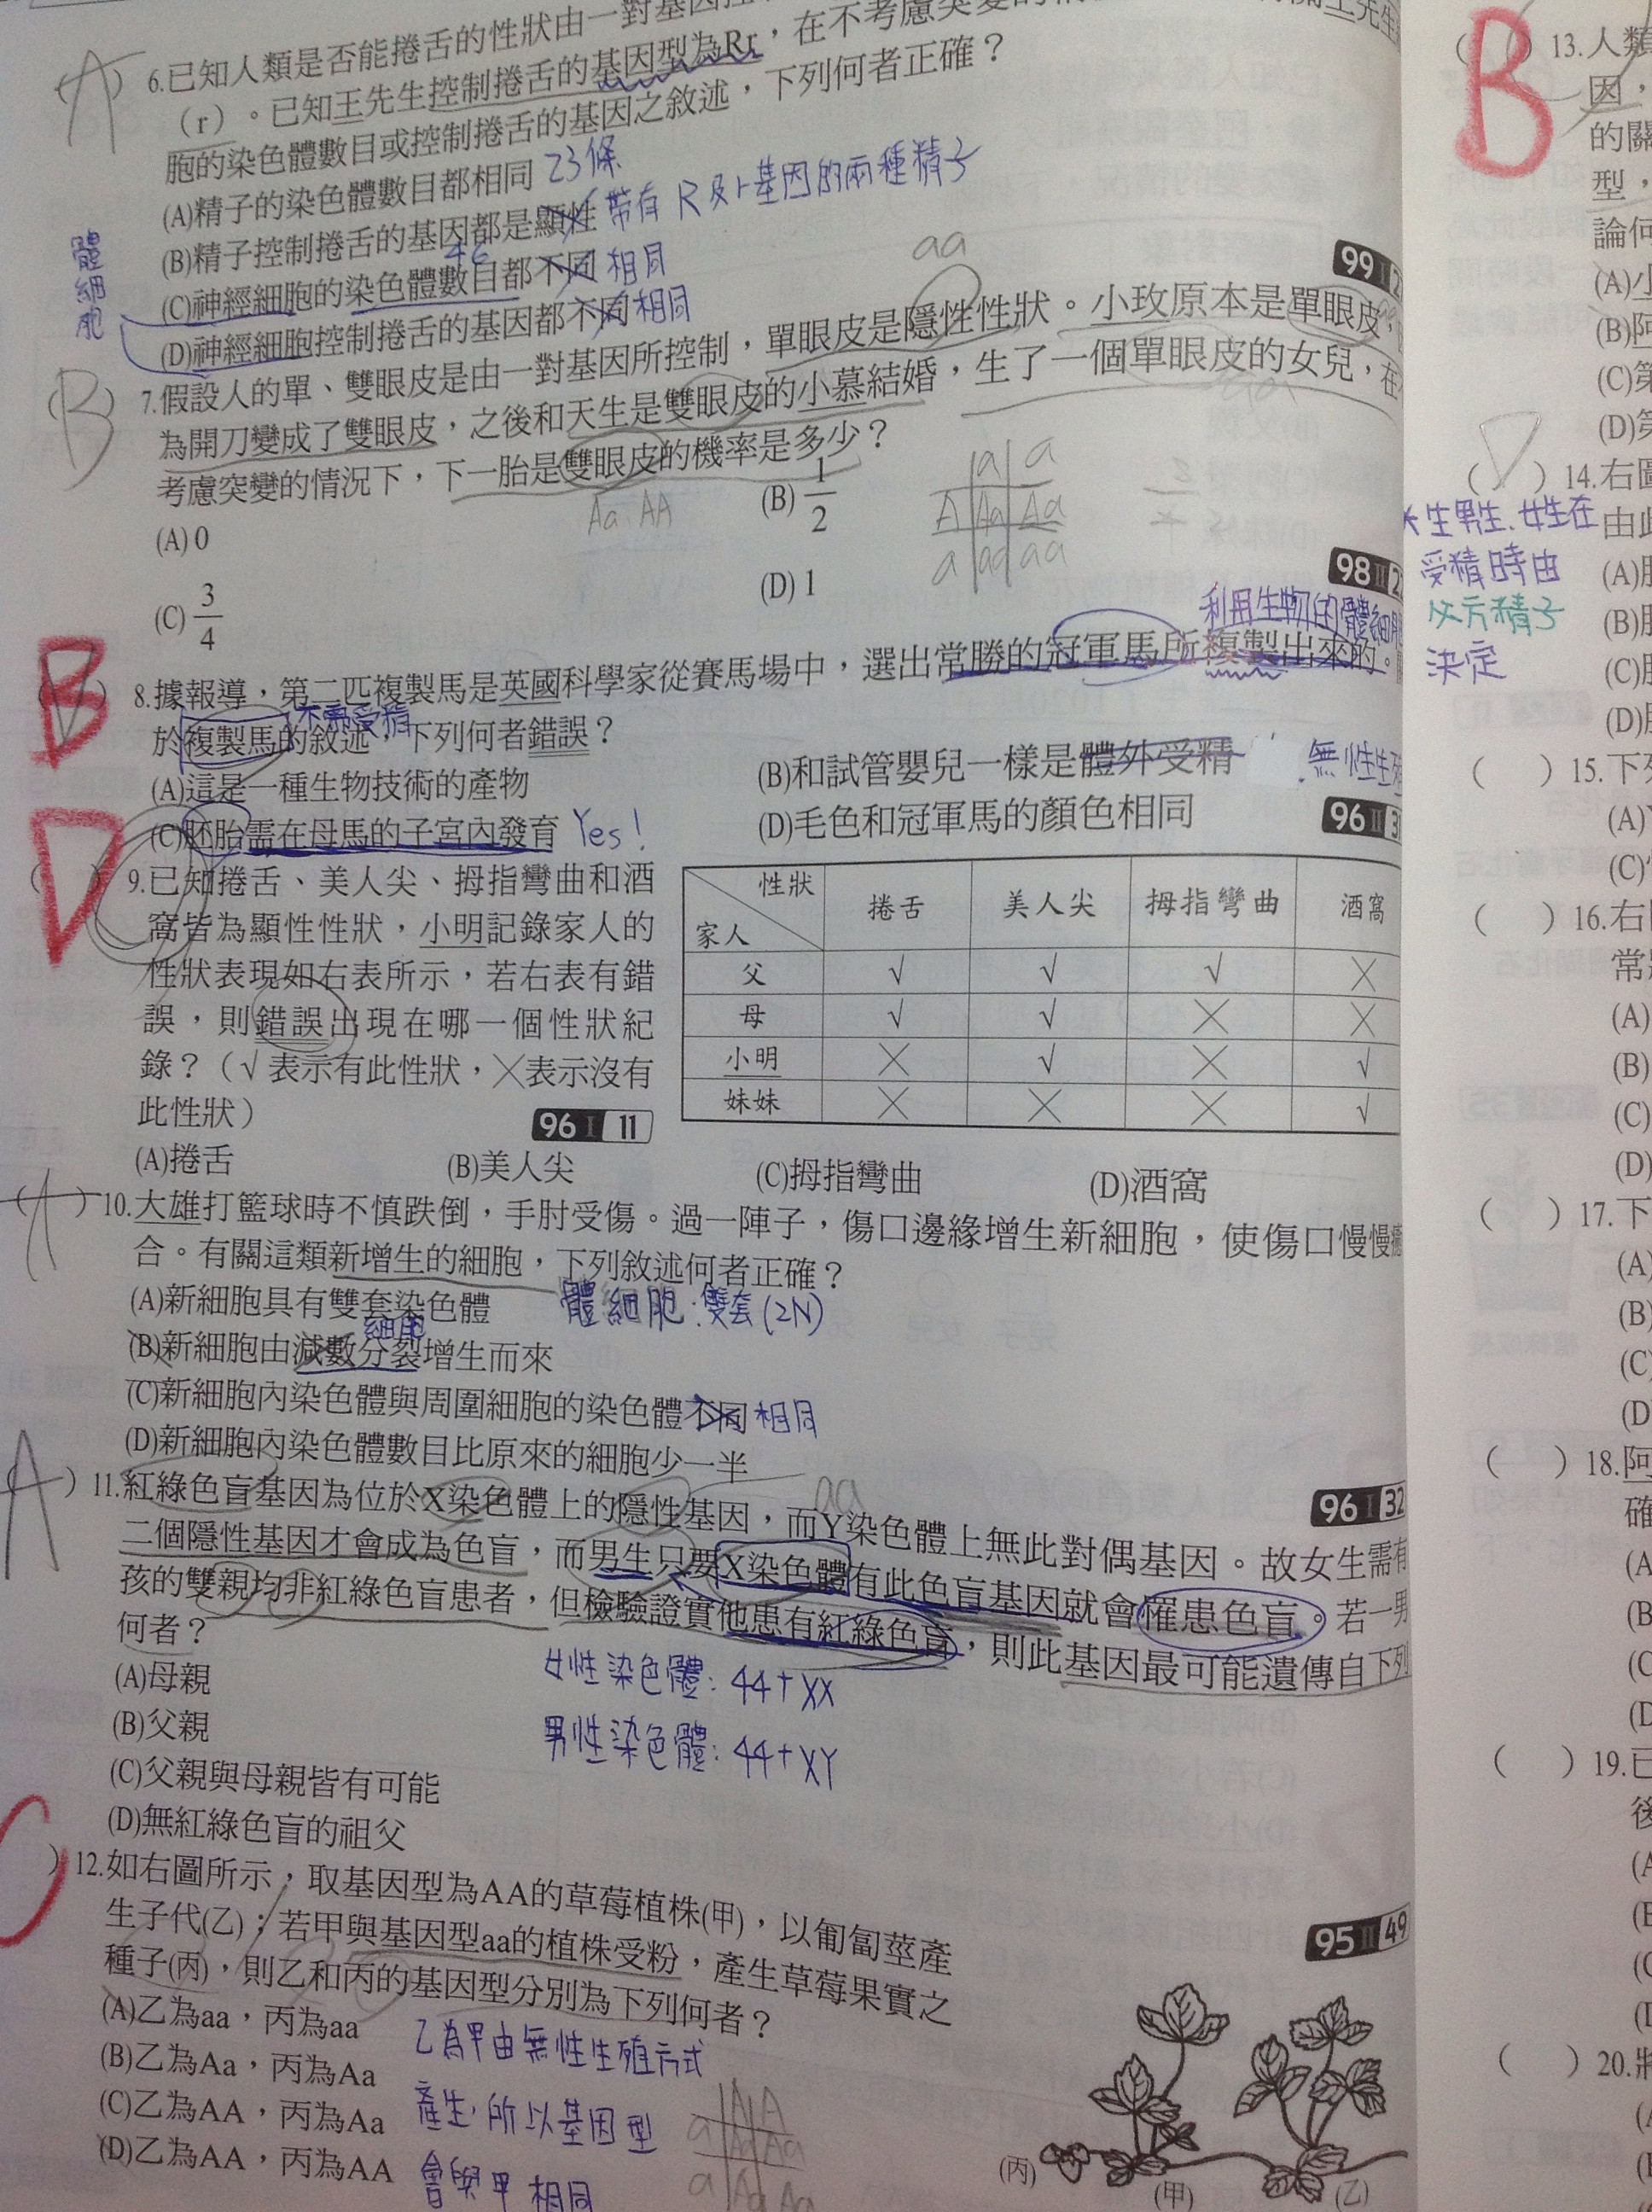 6.已知人類是否能捲舌的性狀由一對基因控
（r）。已知王先生控制捲舌的基因型為Rr，在不考慮突變的
胞的染色體數目或控制捲舌的基因之敘述，下列何者正確？
(A)精子的染色體數目都相同 23條
(B)精子控制捲舌的基因都是顯性 帶有R及r基因的兩種精子
46
體細胞
(C)神經細胞的染色體數目都不同 相同
(D)神經細胞控制捲舌的基因都不同 相同
99 I 2
aa
(B) 7.假設人的單、雙眼皮是由一對基因所控制，單眼皮是隱性性狀。小玫原本是單眼皮，
為開刀變成了雙眼皮，之後和天生是雙眼皮的小慕結婚，生了一個單眼皮的女兒，在
考慮突變的情況下，下一胎是雙眼皮的機率是多少？
Aa AA
(A) 0
(B) 1/2
(C) 3/4
(D) 1
a a
A Aa Aa
a aa aa
98 II 2
利用生物的體細胞
B
8.據報導，第二匹複製馬是英國科學家從賽馬場中，選出常勝的冠軍馬所複製出來的。
不需受精
於複製馬的敘述，下列何者錯誤？
(A)這是一種生物技術的產物
(B)和試管嬰兒一樣是體外受精 無性生殖
(C)胚胎需在母馬的子宮內發育 Yes!
(D)毛色和冠軍馬的顏色相同
96 II 3
D
9.已知捲舌、美人尖、拇指彎曲和酒
窩皆為顯性性狀，小明記錄家人的
性狀表現如右表所示，若右表有錯
誤，則錯誤出現在哪一個性狀紀
錄？（√表示有此性狀，╳表示沒有
此性狀）
96 I 11
性狀 家人 捲舌 美人尖 拇指彎曲 酒窩
父 √ √ √ ╳
母 √ √ ╳ ╳
小明 ╳ √ ╳ √
妹妹 ╳ ╳ ╳ √
(A)捲舌 (B)美人尖 (C)拇指彎曲 (D)酒窩
(A) 10.大雄打籃球時不慎跌倒，手肘受傷。過一陣子，傷口邊緣增生新細胞，使傷口慢慢癒
合。有關這類新增生的細胞，下列敘述何者正確？
(A)新細胞具有雙套染色體 體細胞：雙套(2N)
細胞
(B)新細胞由減數分裂增生而來
(C)新細胞內染色體與周圍細胞的染色體不同 相同
(D)新細胞內染色體數目比原來的細胞少一半
96 I 32
aa
(A) 11.紅綠色盲基因為位於X染色體上的隱性基因，而Y染色體上無此對偶基因。故女生需有
二個隱性基因才會成為色盲，而男生只要X染色體有此色盲基因就會罹患色盲。若一男
孩的雙親均非紅綠色盲患者，但檢驗證實他患有紅綠色盲，則此基因最可能遺傳自下列
何者？
(A)母親
(B)父親
(C)父親與母親皆有可能
(D)無紅綠色盲的祖父
女性染色體：44+XX
男性染色體：44+XY
95 II 49
C
12.如右圖所示，取基因型為AA的草莓植株(甲)，以匍匐莖產
生子代(乙)；若甲與基因型aa的植株受粉，產生草莓果實之
種子(丙)，則乙和丙的基因型分別為下列何者？
(A)乙為aa，丙為aa
(B)乙為Aa，丙為Aa
(C)乙為AA，丙為Aa
(D)乙為AA，丙為AA
乙為甲由無性生殖方式
產生，所以基因型
會與甲相同
A A
a Aa Aa
a Aa Aa
(丙) (甲) (乙)
B
13.人類
因，
的關
型，
論何
(A)小
(B)阿
(C)第
(D)第
14.右圖
由此
(A)
(B)
(C)
(D)
生男生、女生在
受精時由
父方精子
決定
( ) 15.下列
(A)
(C)
( ) 16.右
常
(A)
(B)
(C)
(D)
( ) 17.下
(A)
(B)
(C)
(D)
( ) 18.阿
確
(A
(B
(C
(D
( ) 19.已
後
(A
(B
(C
(D
( ) 20.將